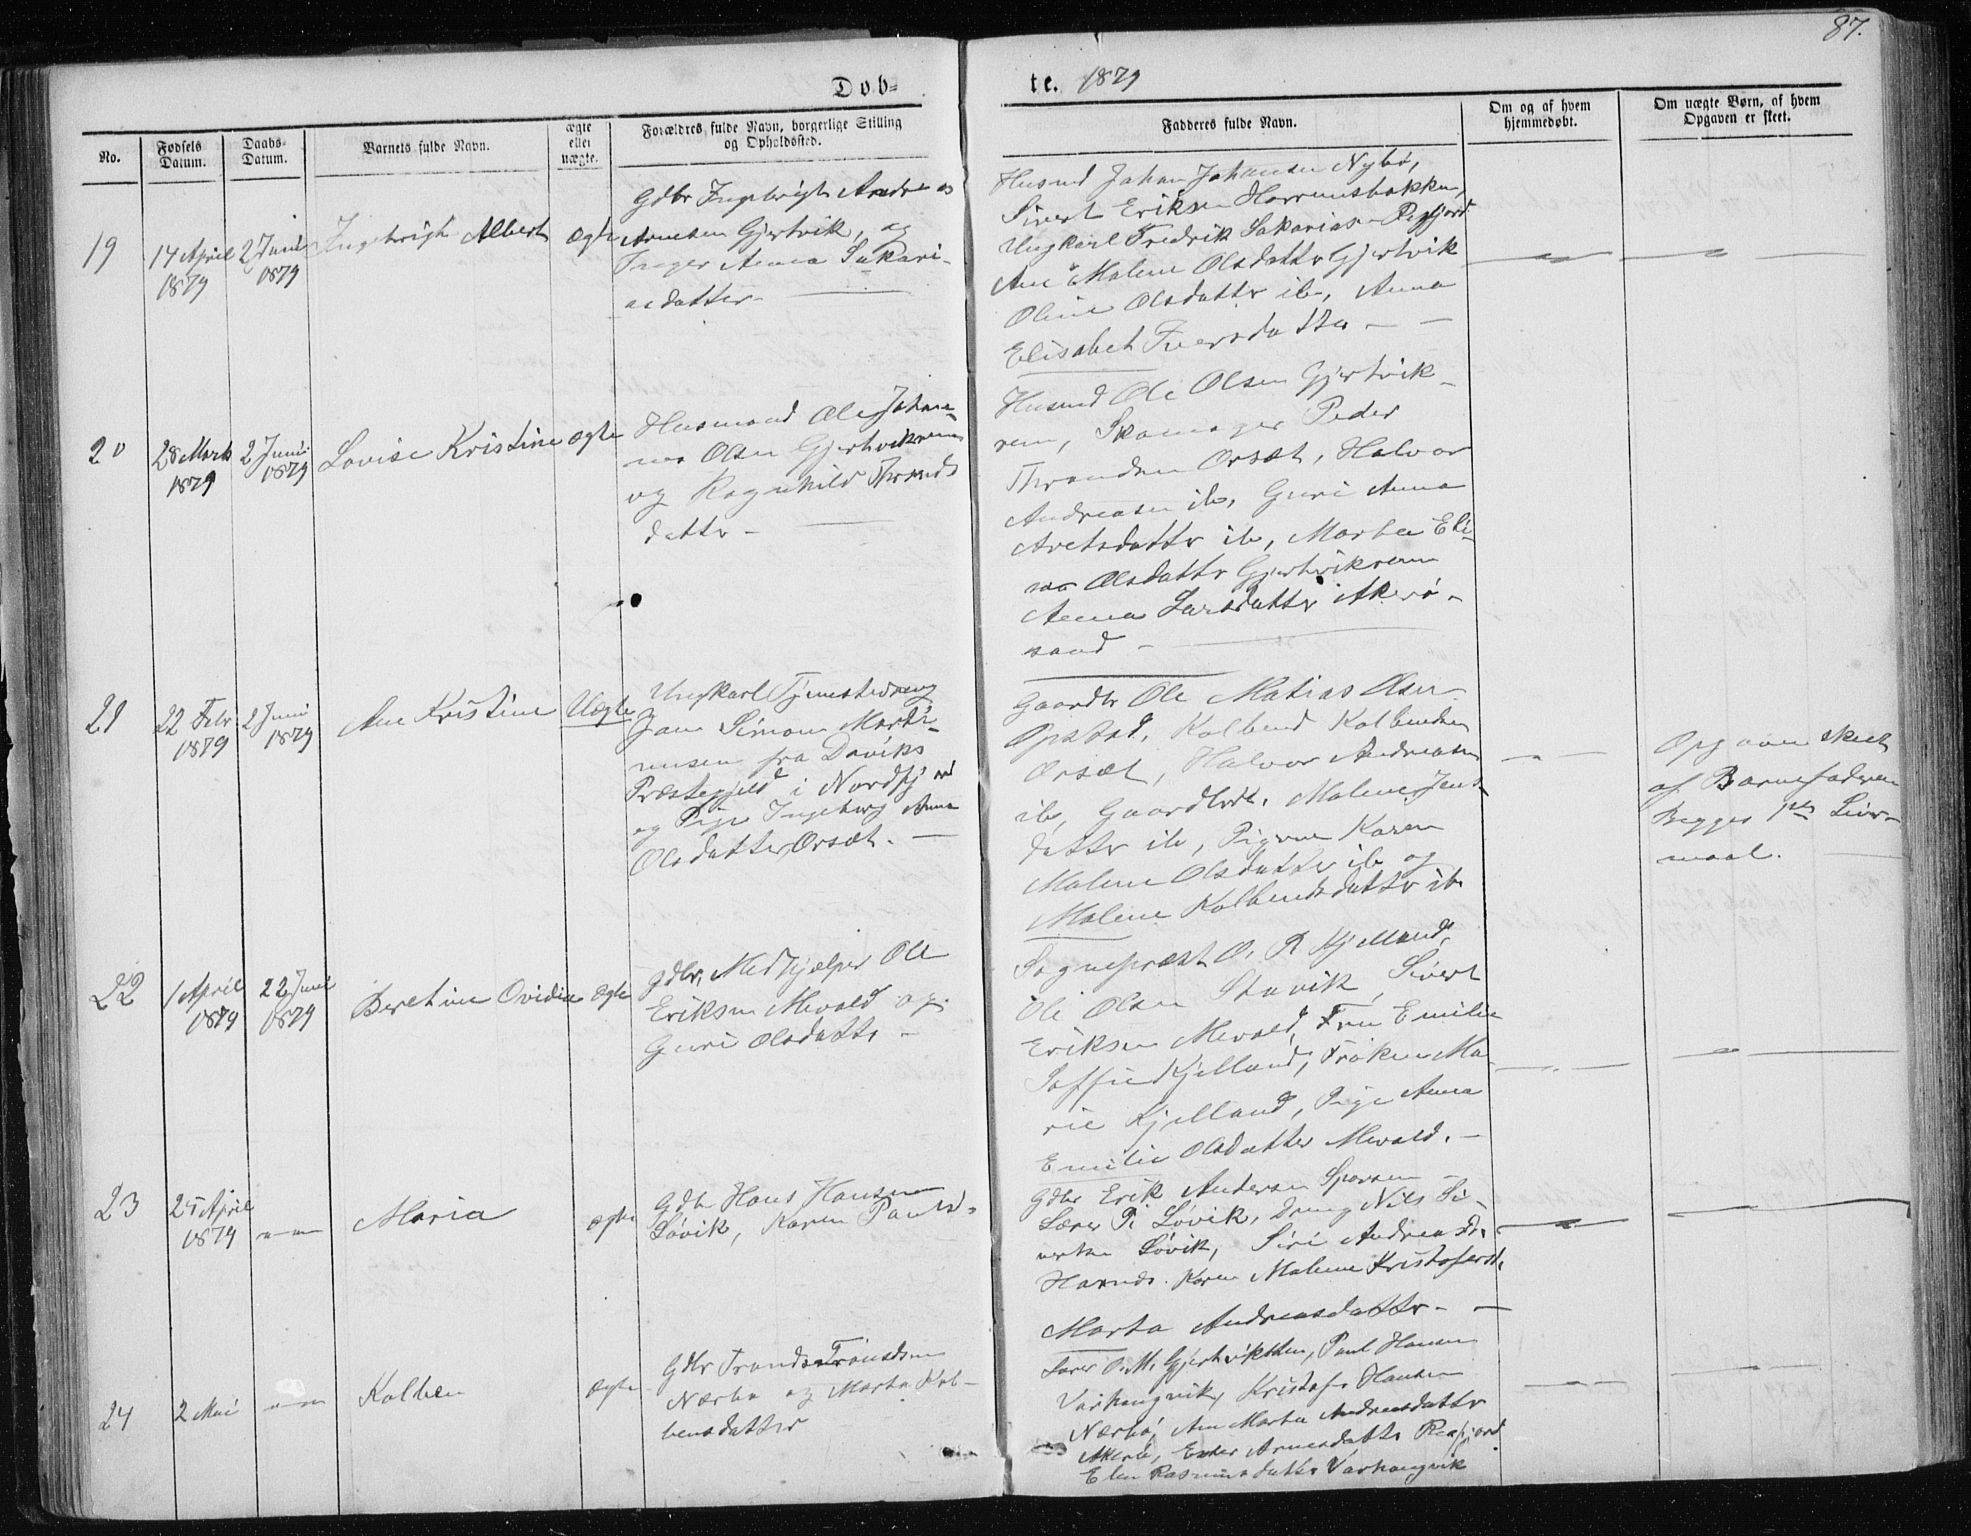 87.
Døb=
te. 1879
No.
Fødsels
Datum.
Daabs-
Datum.
Barnets fulde Navn.
ægte
eller
uægte.
Forældres fulde Navn, borgerlige Stilling
og Opholdssted.
Fadderes fulde Navn.
Om og af hvem
hjemmedøbt.
Om uægte Børn, af hvem
Opgaven er skeet.
19
14 April
1879
2 Juni
1879
Ingebrigt Albert
ægte
Gdbr Ingebrigt Andreas
Arnesen Gjertvik, og
Inger Anna Sakari-
asdatter
Husmd Johan Johansen Nybø,
Sivert Eriksen Harrensbakken,
Ungkarl Fredrik Sakariasen
Ane Malene Olsdatter Gjertvik
Oline Olsdatter ib, Anna
Elisabet Iversdatter
20
28 Marts
1879
2 Juni
1879
Lovise Kristine
ægte
Husmand Ole Johan-
nes Olsen Gjertvikrem
og Ragnhild Thronds
datter
Husmd Ole Olsen Gjertvik-
rem, Skomager Peder
Throndsen Orsæt, Halvor
Andreasen ib, Guri Anna
Aretsdattr ib, Marta Eli-
sa Olsdattr Gjertvikrem
Anna Larsdatter Akerø-
sand
21
22 Febr
1879
2 Juni
1879
Ane Kristine
Uægte
Ungkarl Tjenestedreng
Jan Simon Marti-
nusen fra Daviks
Præstegjeld i Nordfj
og Pige Ingeborg Anna
Olsdatter Orsæt.
Gaardbr Ole Matias Olsen
Opstad, Kolbend Kolbendsen
Orsæt, Halvor Andreasen
ib, Malene Jens
datter ib, Pigerne Karen
Malene Olsdatter ib og
Malene Kolbendsdatter ib
Opgaven skeet
af Barnefaderen
Begges 1ste Leier-
maal.
22
1 April
1879
22 Juni
1879
Beretine Ovidia
ægte
Gdbr, Medhjælper Ole
Eriksen Mevold og
Guri Olsdattr
Sognepræst O. R Kjelland,
Ole Olsen Stavik, Sivert
Eriksen Mevold, Fru Emilie
Soffie Kjelland, Frøken Ma-
rie Kjelland, Pige Anna
Emilie Olsdatter Mevold.
23
25 April
1879
Maria
ægte
Gdbr Hans Hansen
Løvik, Karen Paulsd.
Gdbr Erik Andersen
Lærer P. Løvik, Dreng Nils Si-
vertsen Løvik, Siri Andreasd.
Karen Malene Kristofersd.
Marta Andreasdattr
24
2 Mai
Kolben
ægte
Gdbr Trond Trondsen
Nærbø og Marta Kol-
bensdatter
Lærer O. M. Gjertvikrem, Paul Hansen
Varhaugvik, Kristofer Hansen
Nærbø, Ane Marta Andreasdatter
Arnesdattr
Elen Rasmusdattr Varhaugvik